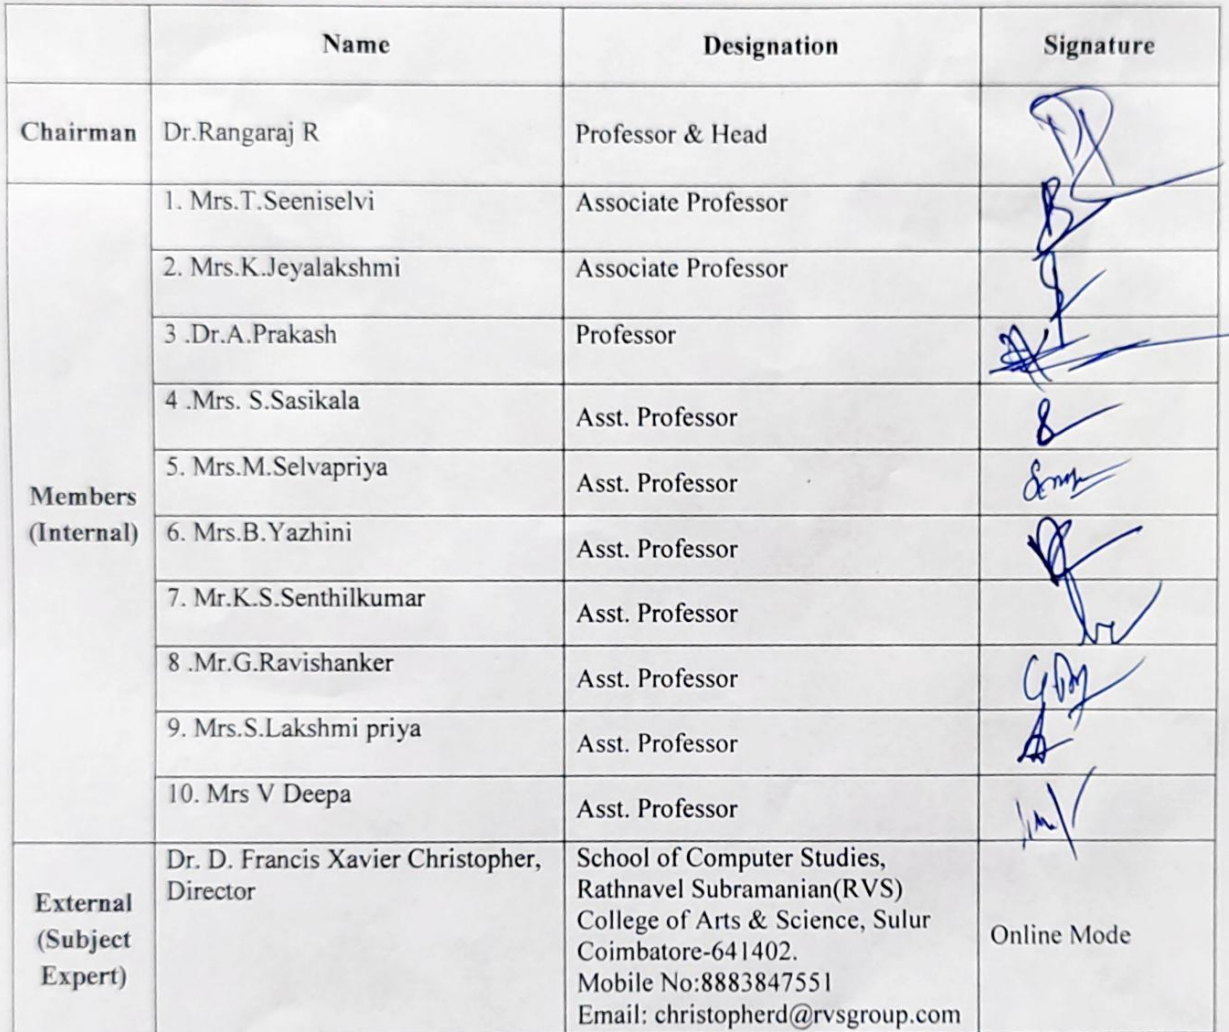 Name Designation Signature
Chairman Dr.Rangaraj R Professor & Head
Members
(Internal)
1. Mrs.T.Seeniselvi Associate Professor
2. Mrs.K.Jeyalakshmi Associate Professor
3 .Dr.A.Prakash Professor
4 .Mrs. S.Sasikala Asst. Professor
5. Mrs.M.Selvapriya Asst. Professor
6. Mrs.B.Yazhini Asst. Professor
7. Mr.K.S.Senthilkumar Asst. Professor
8 .Mr.G.Ravishanker Asst. Professor
9. Mrs.S.Lakshmi priya Asst. Professor
10. Mrs V Deepa Asst. Professor
External
(Subject
Expert)
Dr. D. Francis Xavier Christopher,
Director
School of Computer Studies,
Rathnavel Subramanian(RVS)
College of Arts & Science, Sulur
Coimbatore-641402.
Mobile No:8883847551
Email: christopherd@rvsgroup.com
Online Mode